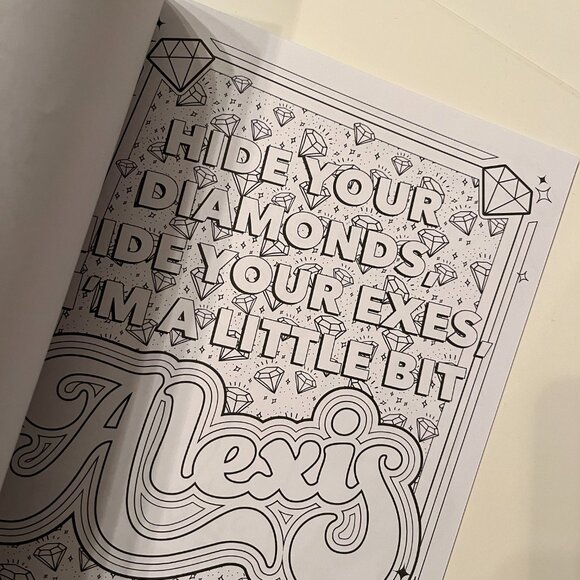 HIDE YOUR
DIAMONDS,
HIDE YOUR EXES
I'M A LITTLE BIT
Alexis